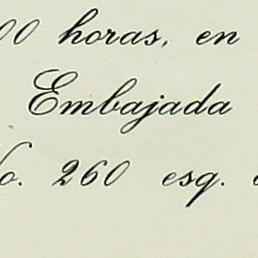 00 horas, en
Embajada
No. 260 esq.